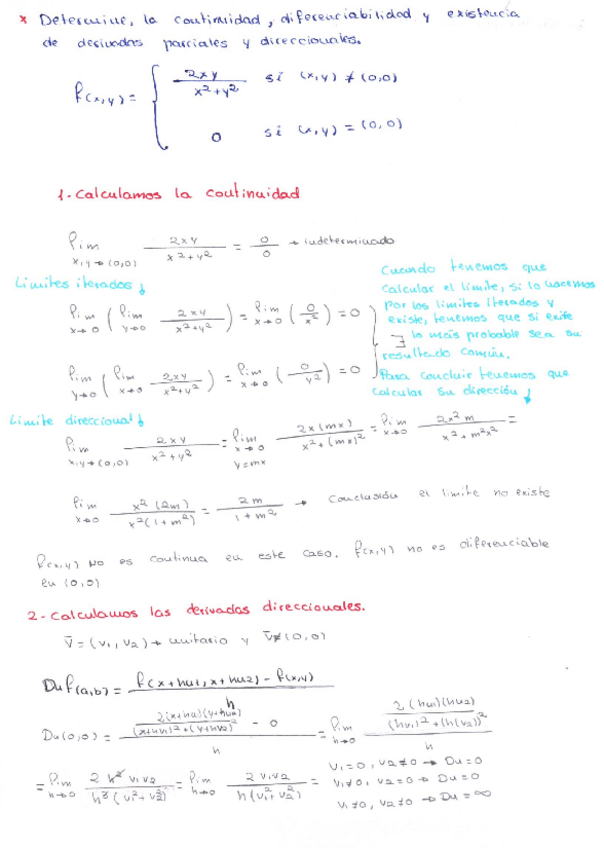 * Determine, la continuidad, diferenciabilidad y existencia
de derivadas parciales y direccionales.
f(x,y) = { 2xy / x²+y² si (x,y) ≠ (0,0)
0 si (x,y) = (0,0)
1.- Calculamos la continuidad
lim x,y→(0,0) 2xy / x²+y² = 0/0 → indeterminado
Limites iterados ↓
lim x→0 ( lim y→0 2xy / x²+y² ) = lim x→0 ( 0 / x² ) = 0
lim y→0 ( lim x→0 2xy / x²+y² ) = lim x→0 ( 0 / y² ) = 0
Cuando tenemos que
calcular el límite, si lo hacemos
por los limites iterados y
existe, tenemos que si existe
∃ lo más probable sea su
resultado común.
Para concluir tenemos que
calcular su dirección ↓
Limite direccional ↓
lim x,y→(0,0) 2xy / x²+y² = lim x→0 y=mx 2x(mx) / x²+(mx)² = lim x→0 2x²m / x²+m²x² =
lim x→0 x²(2m) / x²(1+m²) = 2m / 1+m² → Conclusión el limite no existe
f(x,y) No es continua en este caso. f(x,y) no es diferenciable
en (0,0)
2.- Calculamos las derivadas direccionales.
v̄ = (v1, v2) → unitario y v̄≠(0,0)
Duf(a,b) = f(x+hu1, x+hu2) - f(x,y) / h
Du(0,0) = 2(x+hu)(y+hu2) / (x+hv1)²+(y+hv2)² - 0 / h = lim h→0 2(hu1)(hu2) / (hv1)²+(h(v2))² / h
= lim h→0 2h² v1v2 / h³(v1²+v2²) = lim h→0 2v1v2 / h(v1²+v2²)
v1=0, v2≠0 → Du=0
v1≠0, v2=0 → Du=0
v1≠0, v2≠0 → Du=∞